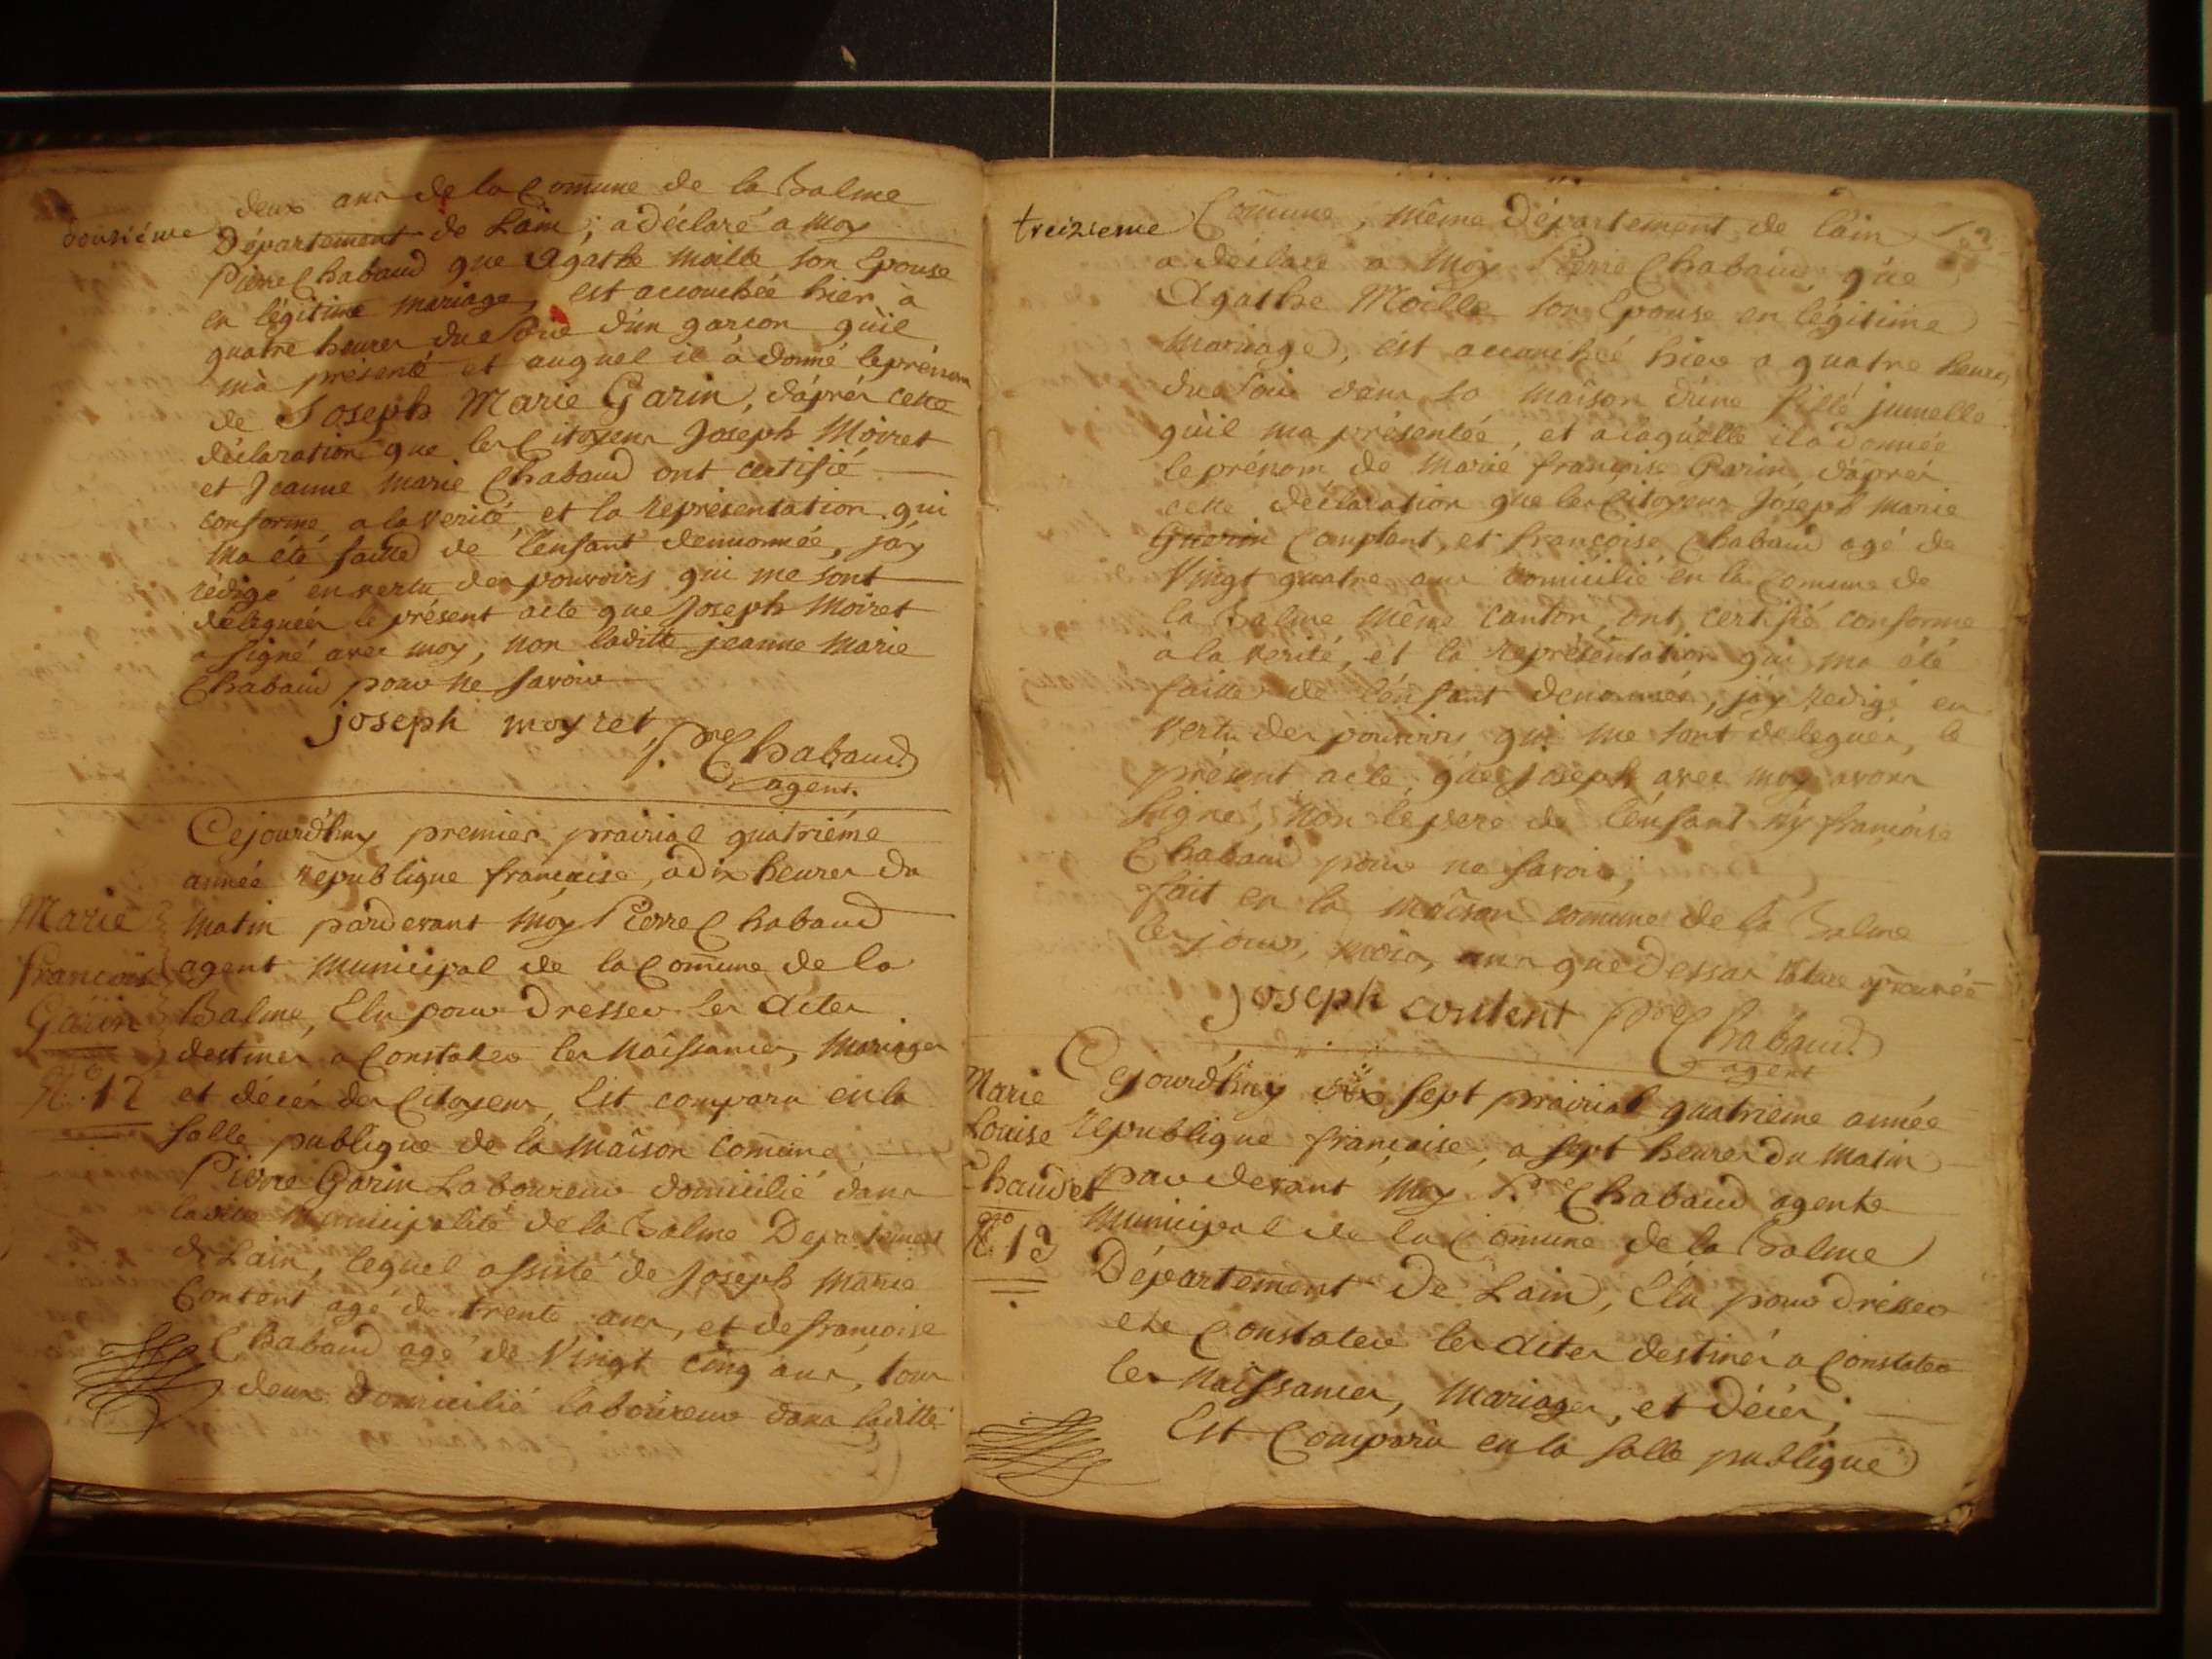 deux ans de la Com̄une de la Balme
dousiéme
Département de Lain, a déclaré a moy
Pierre Chabaud que Agathe Moille son Epouse
en légitime mariage, est accouchée hier à
quatre heures du Soir d'un garcon qu'il
m'a présenté et auquel il à donné le prénom
de Joseph Marie Garin, d'aprés cette
déclaration que les Citoyens Joseph Moiret
et Jeanne Marie Chabaud ont certifié
conforme a la verité, et la représentation qui
ma été faitte de l'enfant denommée, j'ay
rédigé en vertu des pouvoirs qui me sont
délégués le présent acte que Joseph Moiret
a signé avec moy, non laditte jeanne Marie
Chabaud pour ne savoir
joseph moyret, Pre Chabaud
agent.
Cejourd'huy premier prairial quatriéme
année republique francaise, a dix heures du
matin pardevant Moy Pierre Chabaud
agent municipal de la Com̄une de la
Balme, Elu pour dresser les actes
destinés a Constater les Naissances, Mariages
et décés des Citoyens, Est comparu en la
salle publique de la Maison Com̄une,
Pierre Garin Laboureur domicilié dans
laditte Municipalité de la Balme Departement
de Lain, lequel assisté de Joseph Marie
Content agé de trente ans, et de francoise
Chabaud agé de Vingt cinq ans, tous
deux domicilié laboureur dans laditte
Marie
francoise
Garin
No. 12
treizieme
Com̄une, même Département de l'ain
a déclaré a Moy Pierre Chabaud que
Agathe Moille son Epouse en légitime
Mariage, est accouchée hier a quatre heures
du Soir dans sa maison d'une fille jumelle
qu'il ma présentée, et a laquelle il a donnée
le prénom de Marie françoise Garin, d'aprés
cette déclaration que les Citoyens Joseph Marie
Comptent, et françoise Chabaud agé de
Vingt quatre ans domicilié en la Comune de
la Balme même canton, ont certifié conforme
à la verité, et la représentation qui ma été
faitte de l'enfant denommée, j'ay redigé en
vertu des pouvoirs qui me sont delegués, le
présent acte, que Joseph avec moy avons
signé, Non le pere de l'enfant n'y françoise
Chabaud pour ne savoir,
fait en la maison comune de la Balme
les jour, mois, ans que dessus
joseph content Pre Chabaud
agent
Cejourd'huy sept prairial quatrieme année
republique française, a sept heures du Matin
par devant Moy Pre Chabaud agent
Municipal de la Com̄une de la Balme
Département de Lain, Elu pour dresser
ete Constater les actes destinés a Constater
les Naissances, Mariages, et décés,
Est Comparu en la salle publique
Marie
Louise
Chaudet
No. 13